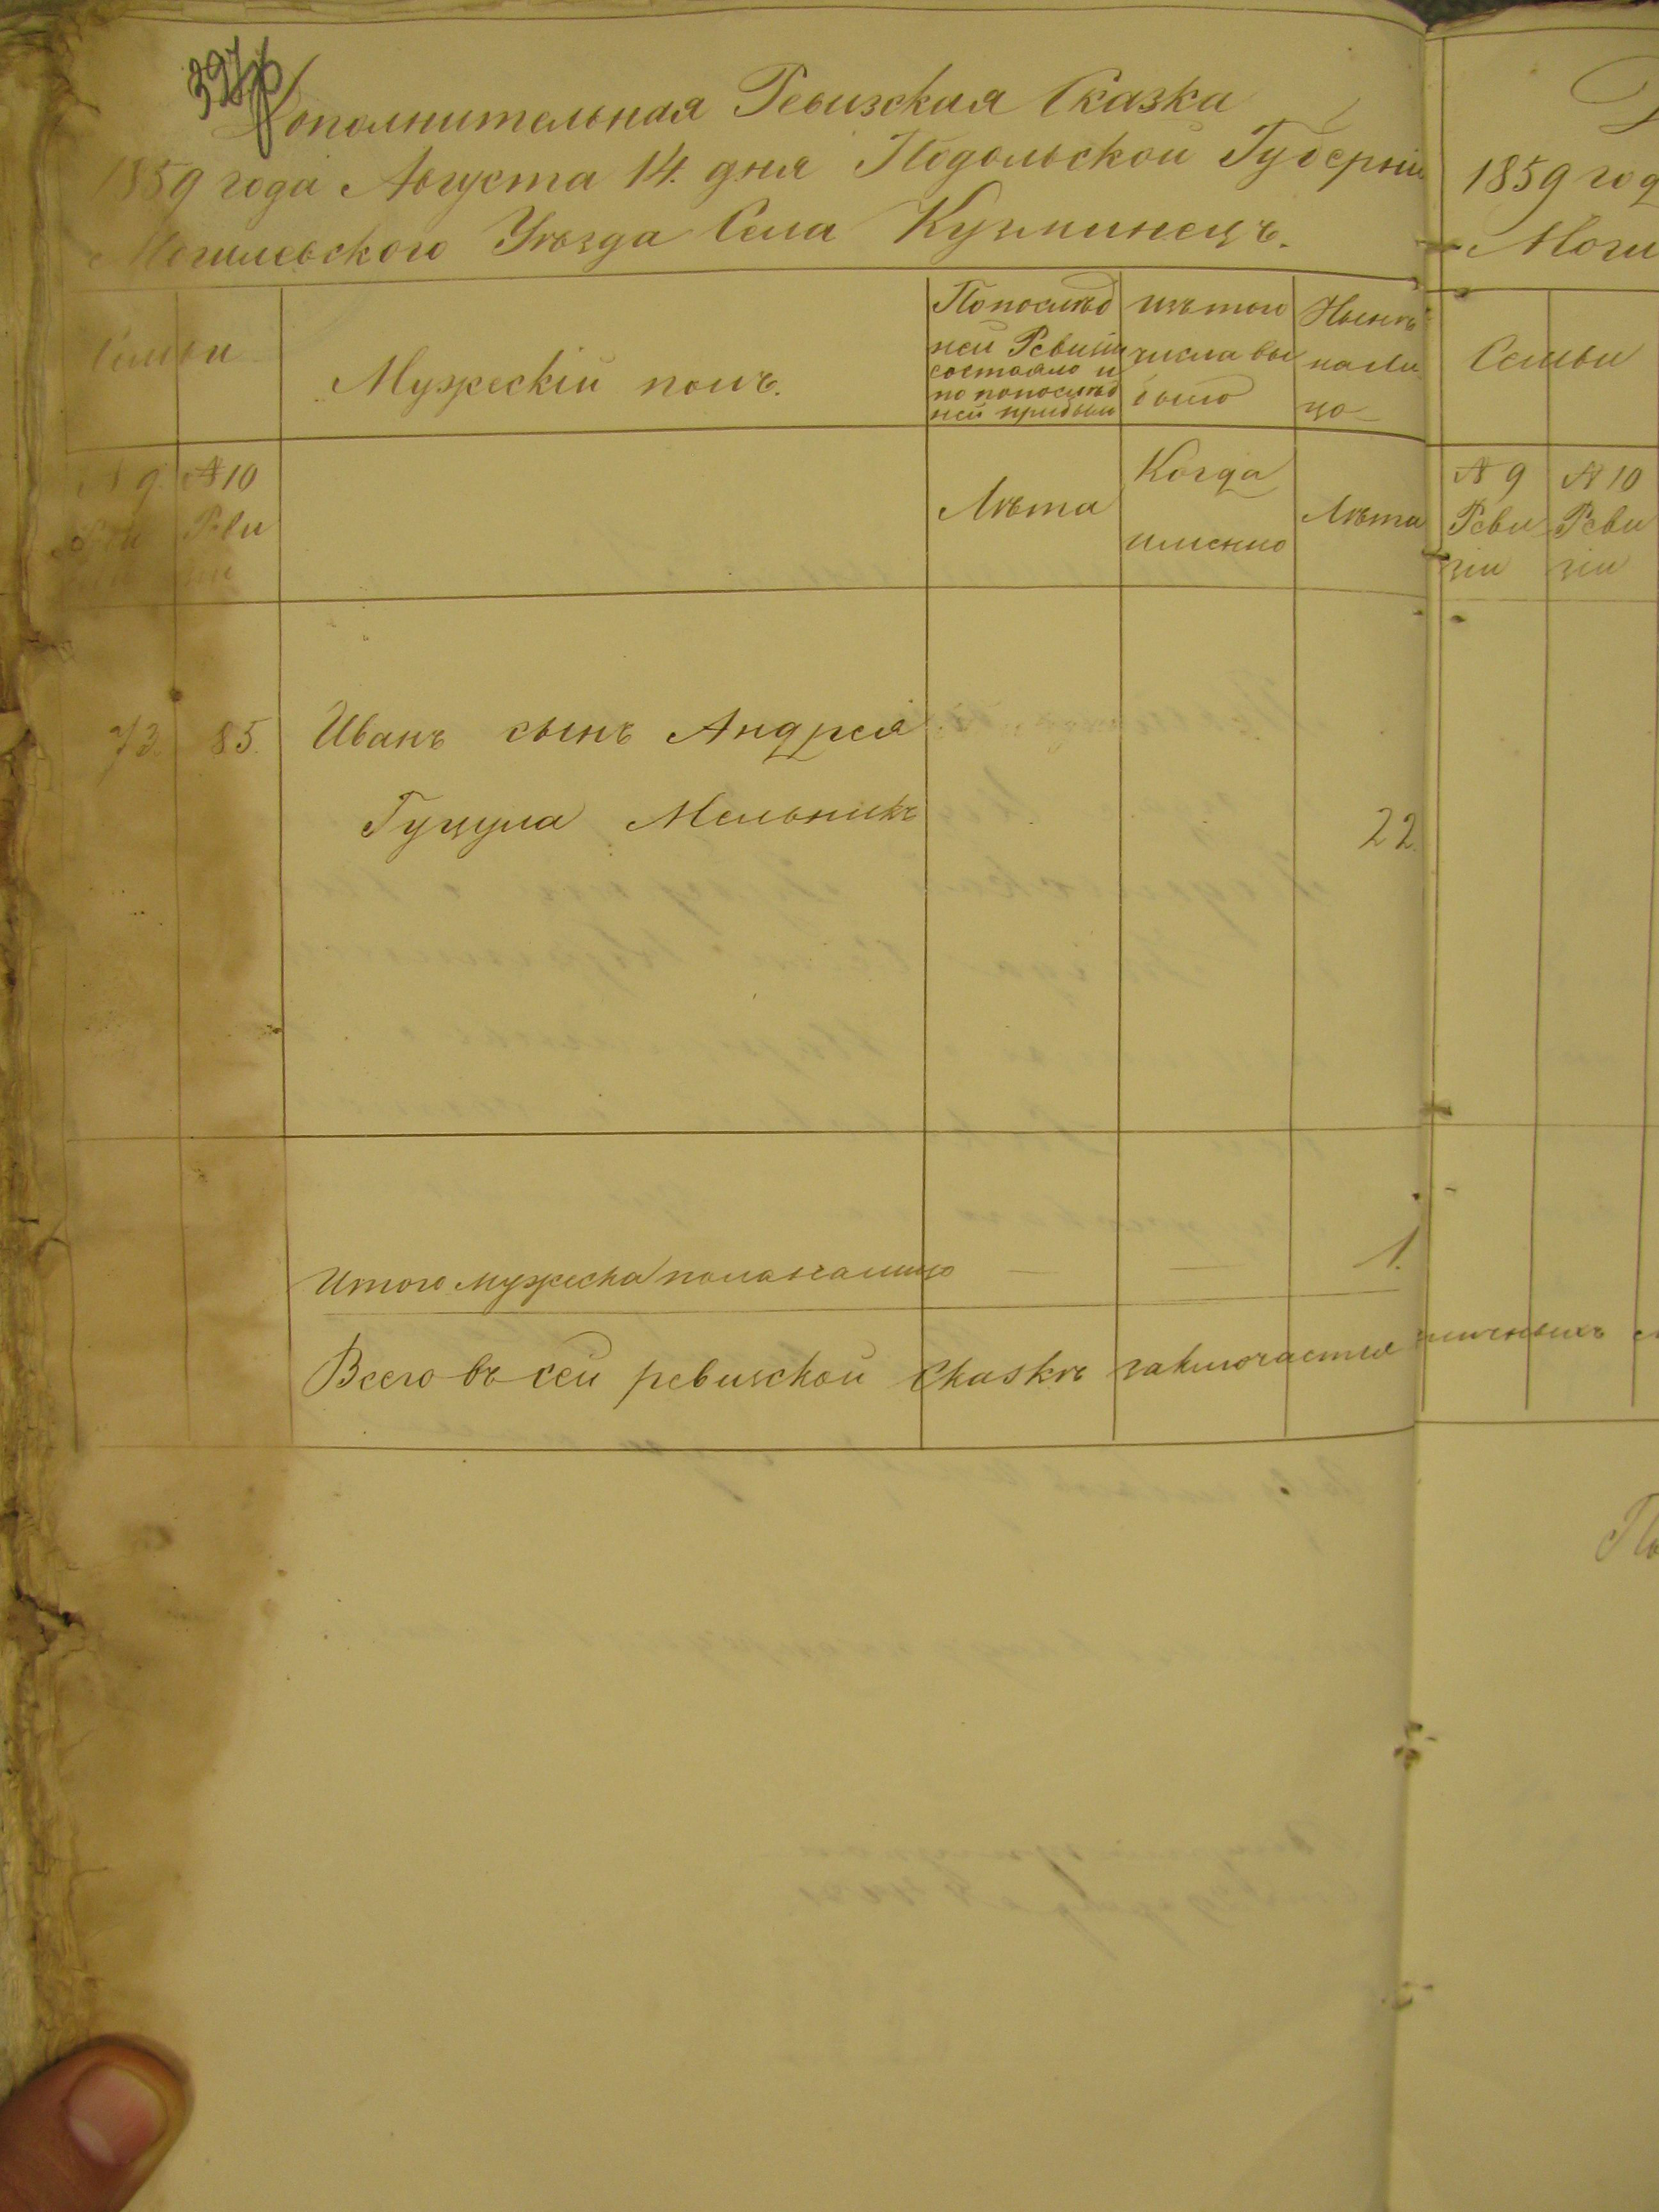 Дополнительная Ревизская Сказка
1859 года Августа 14. дня Подольской Губерніи
Могилевского Уѣзда Села Кузминецъ.
Семьи
Мужескій полъ.
По послѣд
ней Ревизіи
состояло и
по послѣд
ней прибыли
изъ того
числа вы
было
Нынѣ
на ли
цо
№ 9
Реви
зіи
№ 10
Реви
зіи
Лѣта
Когда
именно
Лѣта
73. 85. Иванъ сынъ Андрея
Гуцула Мельникъ 22.
Итого мужеска пола налицо — — 1.
Всего въ сей ревизской Сказкѣ заключается
1859 год
Моги
Семьи
№ 9
Реви
зіи
№ 10
Реви
зіи